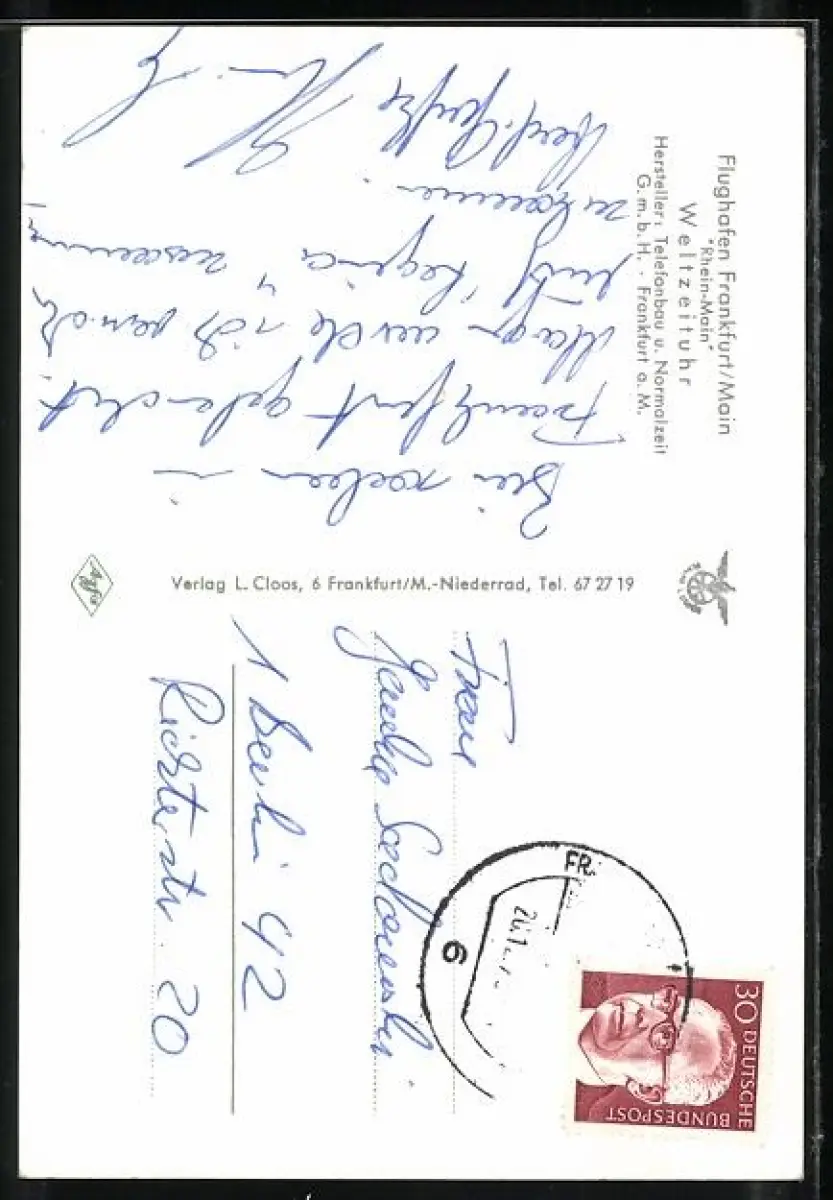 Flughafen Frankfurt/Main
"Rhein-Main"
Weltzeituhr
Hersteller: Telefonbau u. Normalzeit
G.m.b.H. · Frankfurt a. M.
Bin soeben in
Frankfurt gelandet.
werde ich
mit Regina
zukommen.
Herzl. Grüße
Verlag L. Cloos, 6 Frankfurt/M.-Niederrad, Tel. 67 27 19
Agfa
Frau
1 Berlin 42
Richterstr. 20
FR
6
30 DEUTSCHE
BUNDESPOST